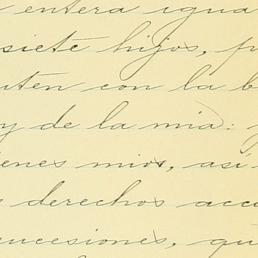 entera igua
siete hijos, p
uten con la b
y de la mia: y
ienes mios, así
s derechos acc
ucesiones, qu